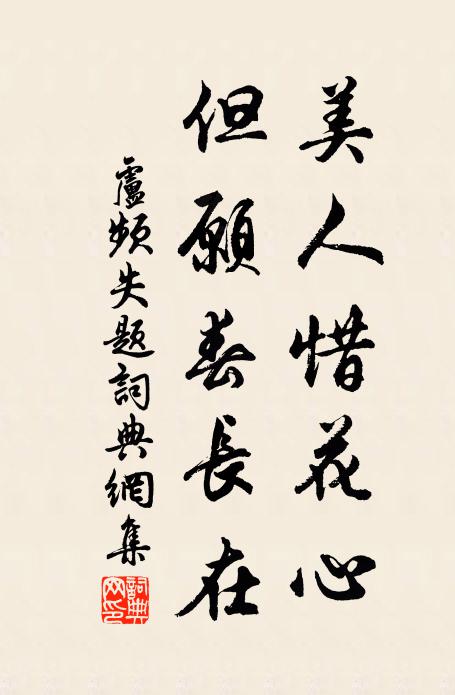 美人惜花心
但願春長在
盧頻失題詞典網集
詞典网印